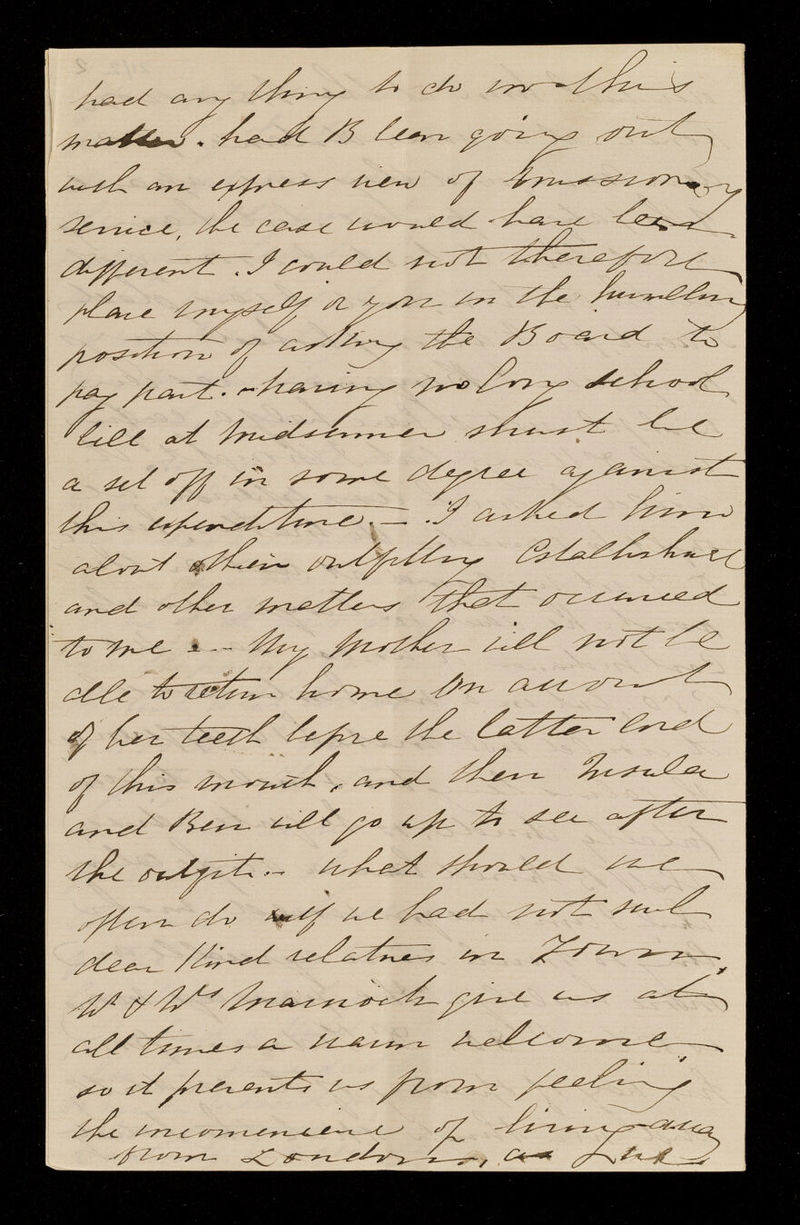 had any thing to do in this
matter. had B been going out
with an express view of missionary
service, the case would have been
different. I could not therefore
place myself or you in the humbling
position of asking the Board to
pay part. - having no long school
bill at Midsummer must be
a set off in some degree against
this expenditure. - I asked him
about their outfitting Establishment
and other matters that occurred
to me - My Mother will not be
able to return home on account
of her teeth before the latter end
of this month, and then Insula
and Ben will go up to see after
the outfit. - what should we
often do if we had not such
dear kind relatives in Town.
all times a warm welcome
so it prevents us from feeling
the inconvenience of living away
from London, as